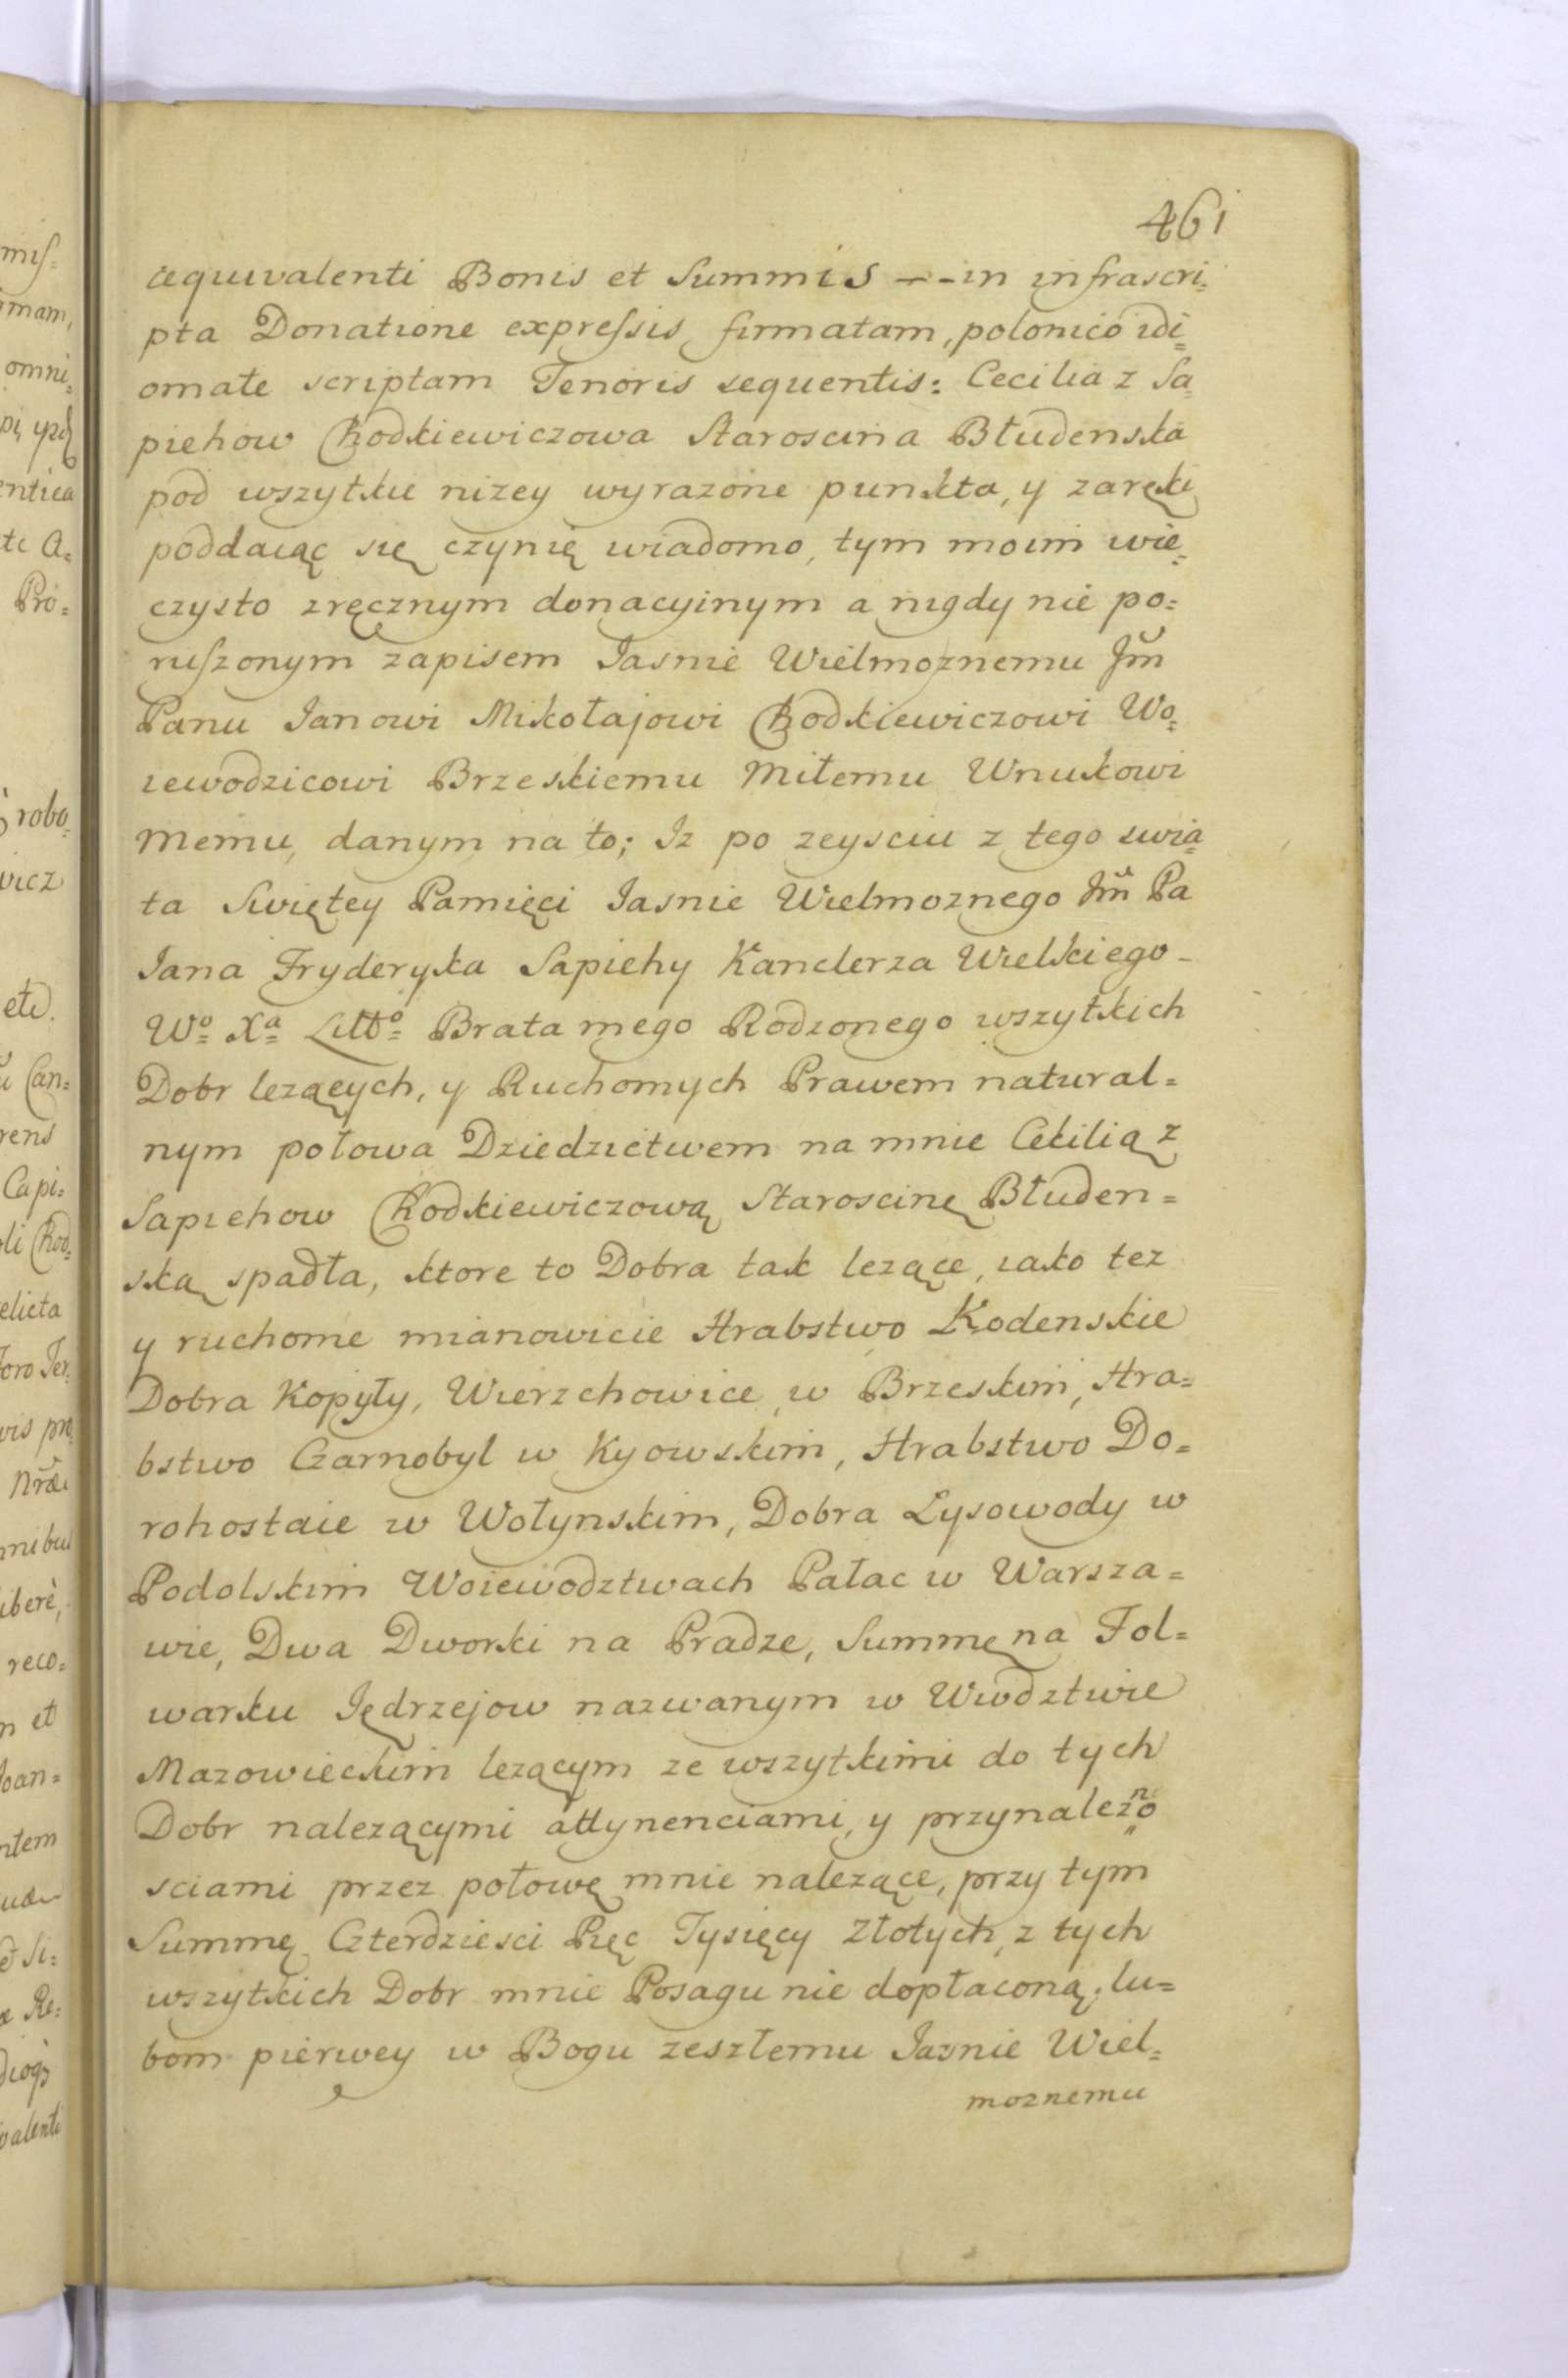 461
æquivalenti Bonis et Summis — - in infrascri=
pta Donatione expressis firmatam, polonico idi=
omate scriptam Tenoris sequentis: Cecilia z Sa=
piehow Chodkiewiczowa Staroscina Błudenska
pod wszytkie nizey wyrazone punkta, y zaręki
poddaiąc się czynię wiadomo, tym moim wie=
czysto zręcznym donacyinym a nigdy nie po=
ruszonym zapisem Iasnie Wielmoznemu Jm̃
Panu Ianowi Mikołajowi Chodkiewiczowi Wo=
iewodzicowi Brzeskiemu Miłemu Wnukowi
Memu, danym na to; Iz po zeysciu z tego swia=
ta Swiętey Pamięci Iasnie Wielmoznego Jm̃ Pa
Iana Fryderyka Sapiehy Kanclerza Wielkiego -
Wo Xa Litto Brata mego Rodzonego wszytkich
Dobr lezących, y Ruchomych Prawem natural=
nym połowa Dziedzictwem na mnie Cecilią z
Sapiehow Chodkiewiczową Staroscinę Błuden=
ską spadła, ktore to Dobra tak lezące, iako tez
y ruchome mianowicie Hrabstwo Kodenskie
Dobra Kopyły, Wierzchowice w Brzeskim, Hra=
bstwo Czarnobyl w Kyowskim, Hrabstwo Do=
rohostaie w Wołynskim, Dobra Lysowody w
Podolskim Woiewodztwach Pałac w Warsza=
wie, Dwa Dworki na Pradze, Summę na Fol=
warku Iędrzejow nazwanym w Wwdztwie
Mazowieckim lezącym ze wszytkimi do tych
Dobr nalezącymi attynenciami, y przynalezno
sciami przez połowę mnie nalezące, przy tym
Summę Czterdziesci Pięc Tysięcy Złotych, z tych
wszytkich Dobr mnie Posagu nie dopłaconą, lu=
bom pierwey w Bogu zeszłemu Iasnie Wiel=
moznemu